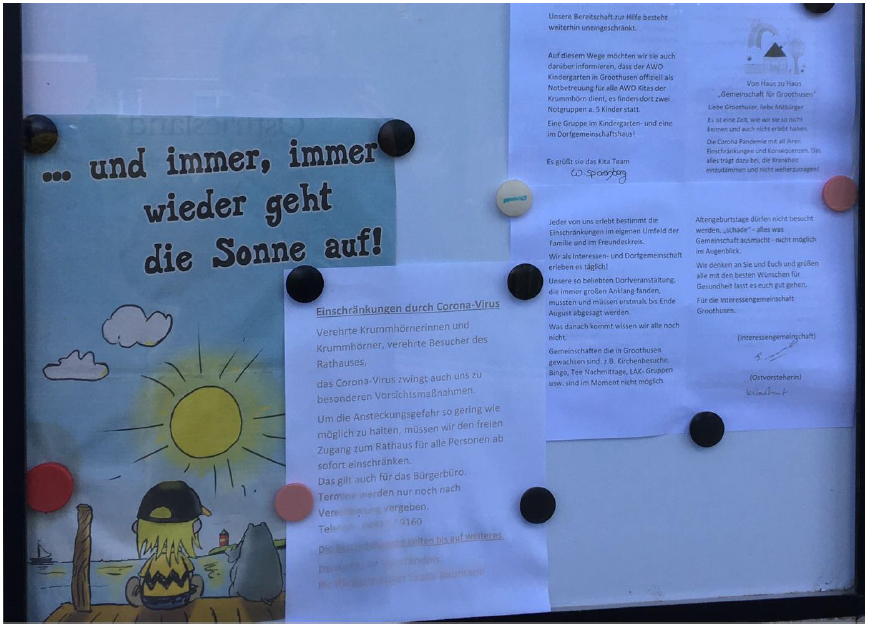 ... und immer, immer
wieder geht
die Sonne auf!
Einschränkungen durch Corona-Virus
Verehrte Krummhörnerinnen und
Krummhörner, verehrte Besucher des
Rathauses,
das Corona-Virus zwingt auch uns zu
besonderen Vorsichtsmaßnahmen.
Um die Ansteckungsgefahr so gering wie
möglich zu halten, müssen wir den freien
Zugang zum Rathaus für alle Personen ab
sofort einschränken.
Das gilt auch für das Bürgerbüro.
Termine werden nur noch nach
Vereinbarung vergeben.
gelten bis auf weiteres.
Unsere Bereitschaft zur Hilfe besteht
weiterhin uneingeschränkt.
Auf diesem Wege möchten wir sie auch
darüber informieren, dass der AWO
Kindergarten in Groothusen offiziell als
Notbetreuung für alle AWO Kitas der
Krummhörn dient, es finden dort zwei
Notgruppen a. 5 Kinder statt.
Eine Gruppe im Kindergarten- und eine
im Dorfgemeinschaftshaus!
Es grüßt sie das Kita Team
Von Haus zu Haus
„Gemeinschaft für Groothusen"
Liebe Groothuser, liebe Mitbürger
Es ist eine Zeit, wie wir sie so nicht
kennen und auch nicht erlebt haben.
Die Corona Pandemie mit all ihren
Einschränkungen und Konsequenzen. Das
alles trägt dazu bei, die Krankheit
einzudämmen und nicht weiterzutragen!
Jeder von uns erlebt bestimmt die
Einschränkungen im eigenen Umfeld der
Familie und im Freundeskreis.
Wir als Interessen- und Dorfgemeinschaft
erleben es täglich!
Unsere so beliebten Dorfveranstaltung,
die immer großen Anklang fanden,
mussten und müssen erstmals bis Ende
August abgesagt werden.
Was danach kommt wissen wir alle noch
nicht.
Gemeinschaften die in Groothusen
gewachsen sind, z.B. Kirchenbesuche,
Bingo, Tee Nachmittage, LAK- Gruppen
usw. sind im Moment nicht möglich.
Altengeburtstage dürfen nicht besucht
werden, „schade" - alles was
Gemeinschaft ausmacht - nicht möglich
im Augenblick.
Wir denken an Sie und Euch und grüßen
alle mit den besten Wünschen für
Gesundheit lasst es euch gut gehen.
Für die Interessengemeinschaft
Groothusen.
(Interessengemeinschaft)
(Ostvorsteherin)